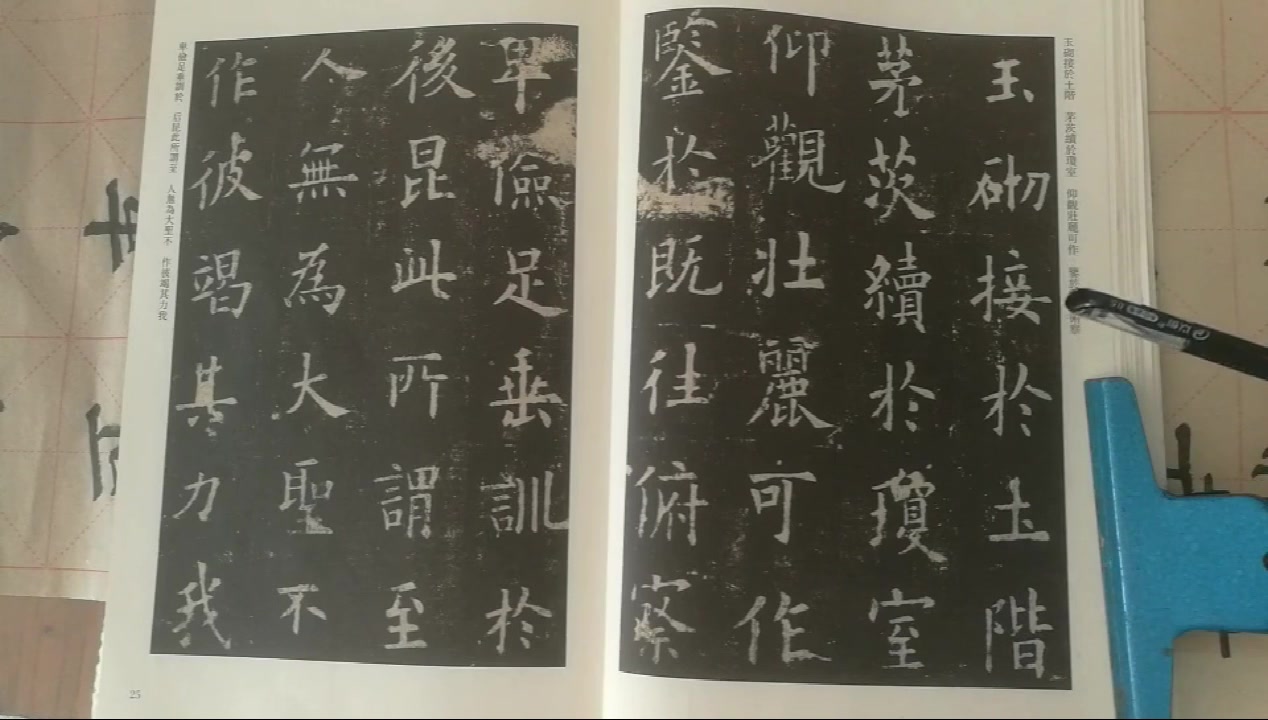 玉砌接於土階 茅茨續於瓊室 仰觀壯麗可作
玉砌接於土階
茅茨續於瓊室
仰觀壯麗可作
鑒於既往俯察
卑儉足垂訓於
後昆此所謂至
人無為大聖不
作彼竭其力我
卑儉足垂訓於 后昆此所謂至 人無為大聖不 作彼竭其力我
25